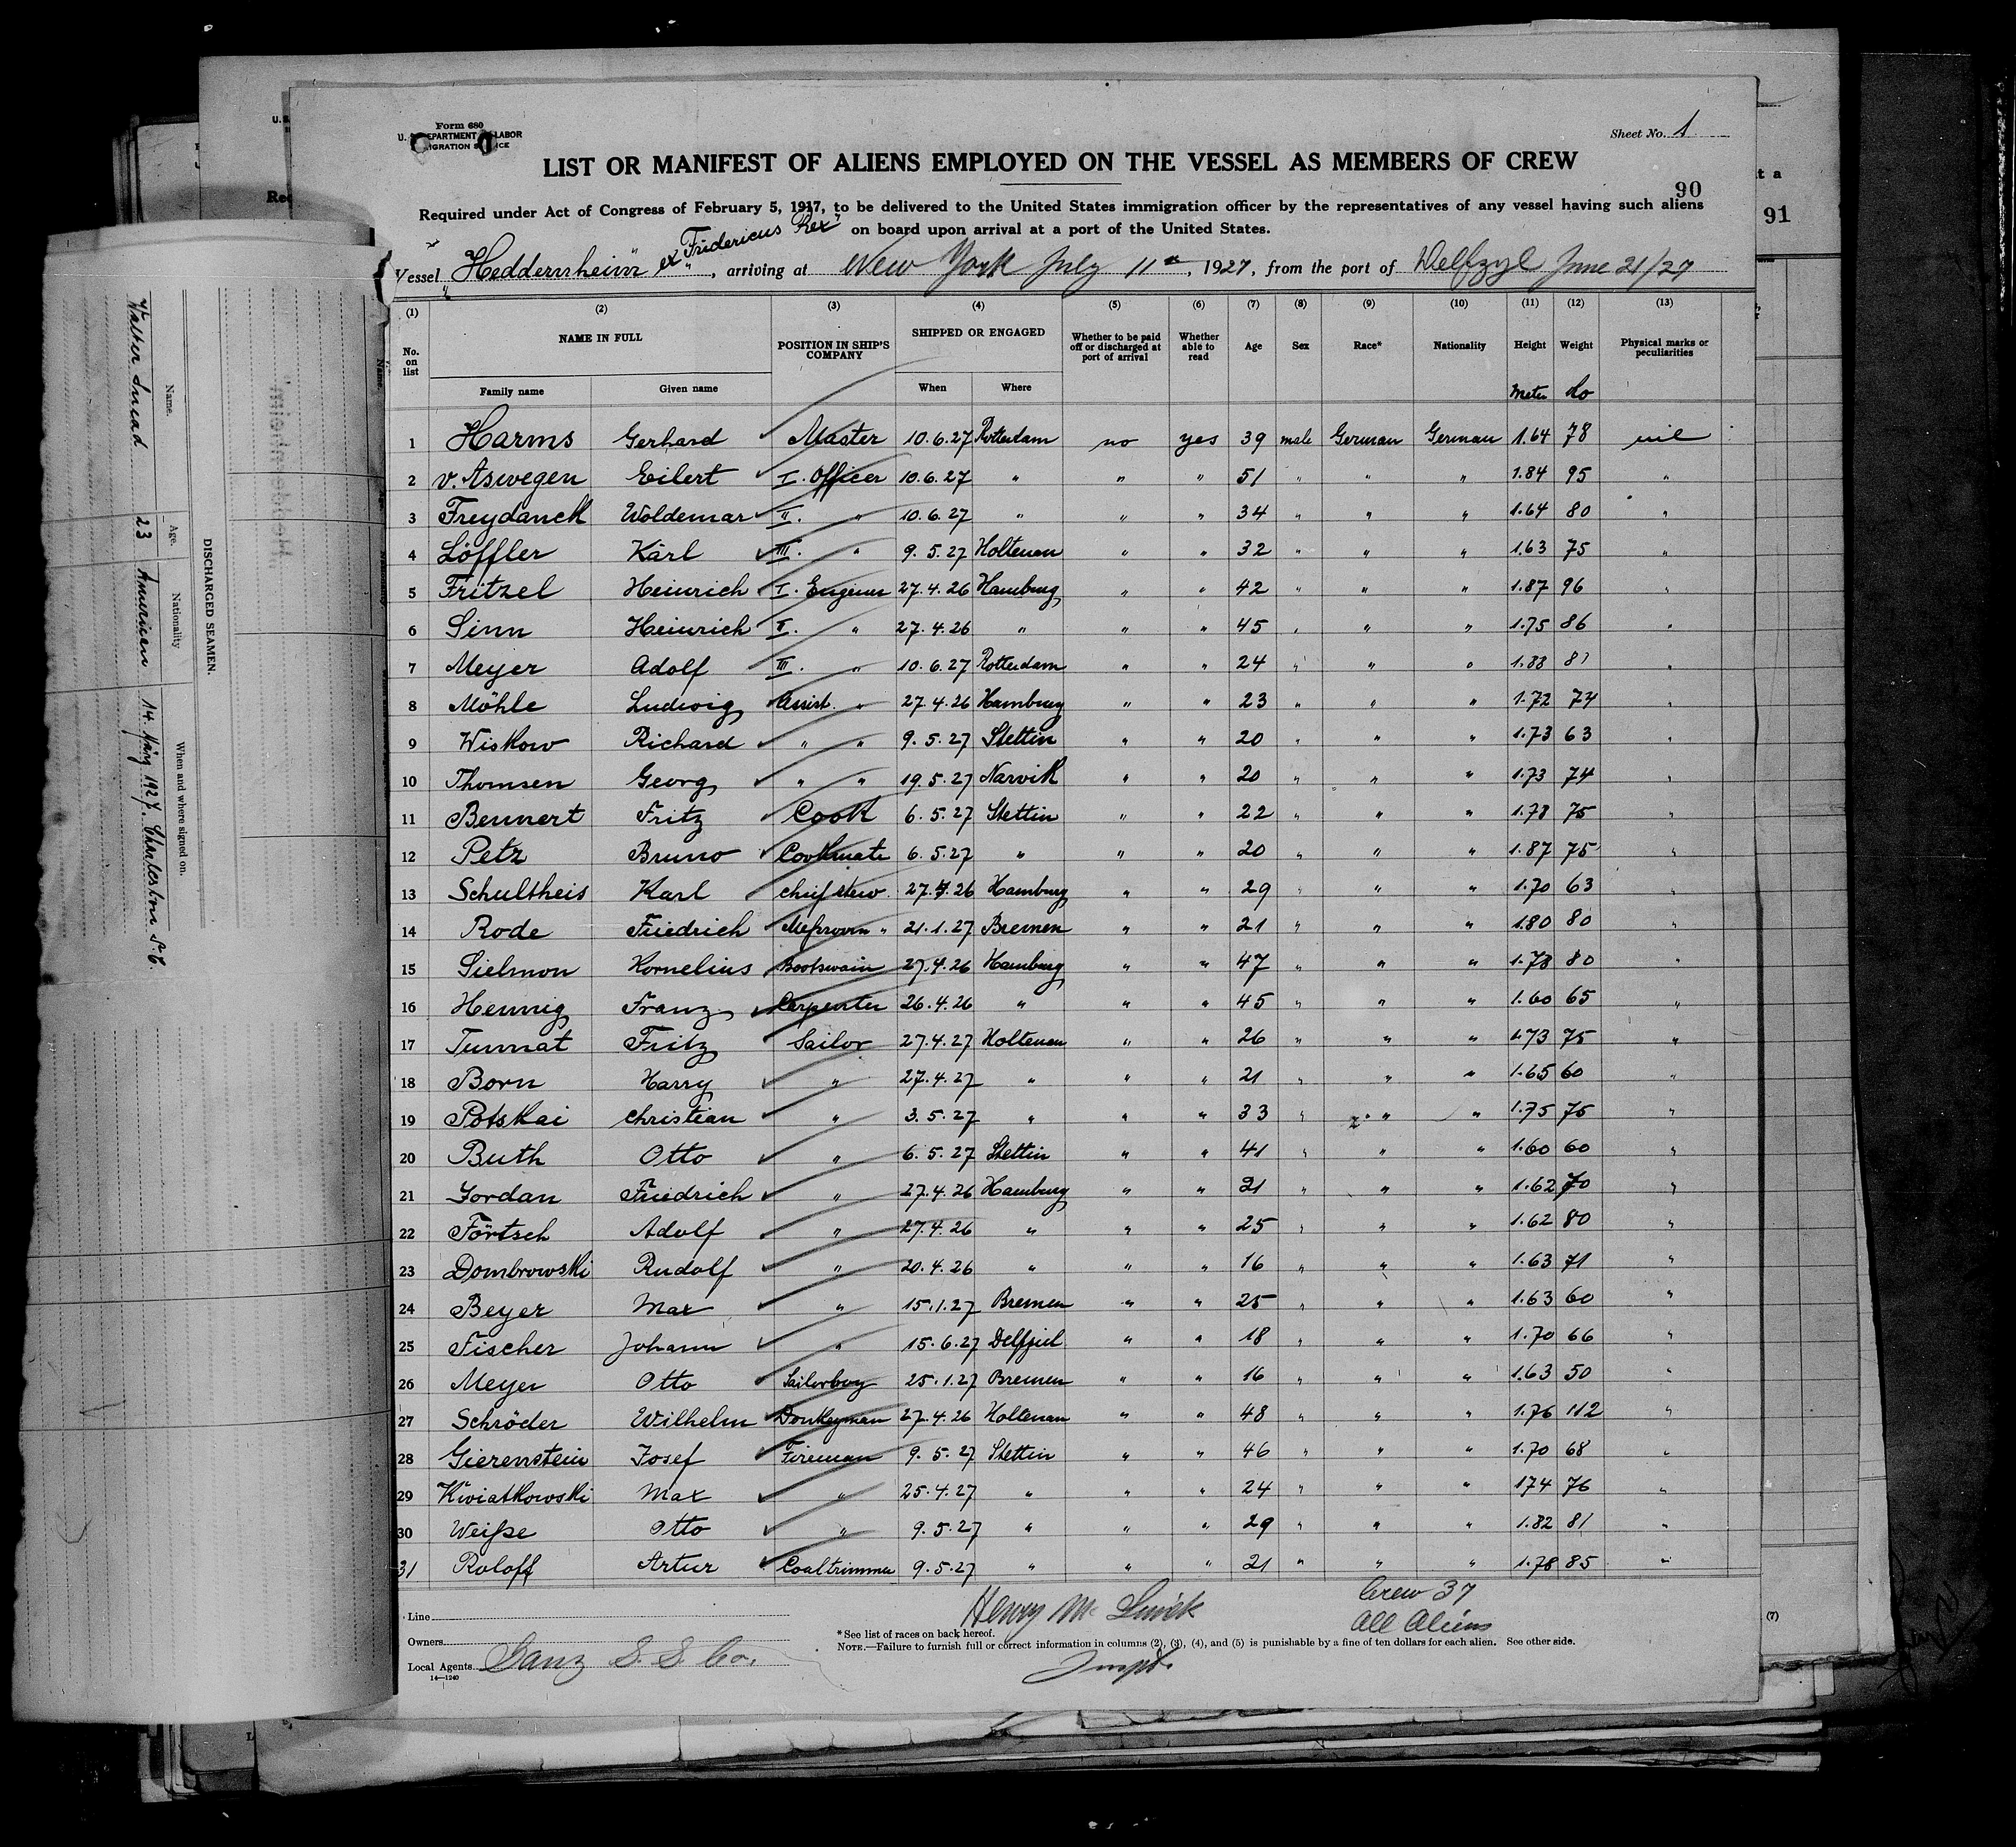 Form 680
U. S. DEPARTMENT OF LABOR
IMMIGRATION SERVICE
Sheet No. 1
LIST OR MANIFEST OF ALIENS EMPLOYED ON THE VESSEL AS MEMBERS OF CREW
90
Required under Act of Congress of February 5, 1917, to be delivered to the United States immigration officer by the representatives of any vessel having such aliens
on board upon arrival at a port of the United States.
Vessel "Heddernheim" ex "Fridericus Rex", arriving at New York July 11th, 1927, from the port of Delfzyl June 21/27
(1) (2) (3) (4) (5) (6) (7) (8) (9) (10) (11) (12) (13)
No. on list NAME IN FULL POSITION IN SHIP'S COMPANY SHIPPED OR ENGAGED Whether to be paid off or discharged at port of arrival Whether able to read Age Sex Race* Nationality Height Weight Physical marks or peculiarities
Family name Given name When Where Meter Ko
1 Harms Gerhard Master 10.6.27 Rotterdam no yes 39 male German German 1.64 78 nil
2 v. Aswegen Eilert I. Officer 10.6.27 " " " 51 " " " 1.84 95 "
3 Freydanck Woldemar II. " 10.6.27 " " " 34 " " " 1.64 80 "
4 Löffler Karl III. " 9.5.27 Holtenau " " 32 " " " 1.63 75 "
5 Fritzel Heinrich I. Engineer 27.4.26 Hamburg " " 42 " " " 1.87 96 "
6 Sinn Heinrich II. " 27.4.26 " " " 45 " " " 1.75 86 "
7 Meyer Adolf III. " 10.6.27 Rotterdam " " 24 " " " 1.88 81 "
8 Möhle Ludwig Assist. " 27.4.26 Hamburg " " 23 " " " 1.72 74 "
9 Wiskow Richard " " 9.5.27 Stettin " " 20 " " " 1.73 63 "
10 Thomsen Georg " " 19.5.27 Narvik " " 20 " " " 1.73 74 "
11 Bennert Fritz Cook 6.5.27 Stettin " " 22 " " " 1.78 75 "
12 Petz Bruno Cooksmate 6.5.27 " " " 20 " " " 1.87 75 "
13 Schultheis Karl chief stew. 27.4.26 Hamburg " " 29 " " " 1.70 63 "
14 Rode Friedrich Meßroom " 21.1.27 Bremen " " 21 " " " 1.80 80 "
15 Sielmon Kornelius Bootswain 27.4.26 Hamburg " " 47 " " " 1.78 80 "
16 Hennig Franz Carpenter 26.4.26 " " " 45 " " " 1.60 65 "
17 Tunnat Fritz Sailor 27.4.27 Holtenau " " 26 " " " 1.73 75 "
18 Born Harry " 27.4.27 " " " 21 " " " 1.65 60 "
19 Potskai Christian " 3.5.27 " " " 33 " " " 1.75 75 "
20 Buth Otto " 6.5.27 Stettin " " 41 " " " 1.60 60 "
21 Jordan Friedrich " 27.4.26 Hamburg " " 21 " " " 1.62 70 "
22 Förtsch Adolf " 27.4.26 " " " 25 " " " 1.62 80 "
23 Dombrowski Rudolf " 20.4.26 " " " 16 " " " 1.63 71 "
24 Beyer Max " 15.1.27 Bremen " " 25 " " " 1.63 60 "
25 Fischer Johann " 15.6.27 Delfziel " " 18 " " " 1.70 66 "
26 Meyer Otto Sailorboy 25.1.27 Bremen " " 16 " " " 1.63 50 "
27 Schröder Wilhelm Donkeyman 27.4.26 Holtenau " " 48 " " " 1.76 112 "
28 Gierenstein Josef Fireman 9.5.27 Stettin " " 46 " " " 1.70 68 "
29 Kwiatkowski Max " 25.4.27 " " " 24 " " " 174 76 "
30 Weiße Otto " 9.5.27 " " " 29 " " " 1.82 81 "
31 Roloff Artur Coaltrimmer 9.5.27 " " " 21 " " " 1.78 85 "
Crew 37
All Aliens
Line
Henry Mc
*See list of races on back hereof.
Owners
NOTE.—Failure to furnish full or correct information in columns (2), (3), (4), and (5) is punishable by a fine of ten dollars for each alien. See other side.
Local Agents Ganz S. S. Co.
Inspt.
14—1240
91
t a
(7)
DISCHARGED SEAMEN.
Name. Age. Nationality When and where signed on.
Walter Snead 23 American 14. März 1927. Charleston S.C.